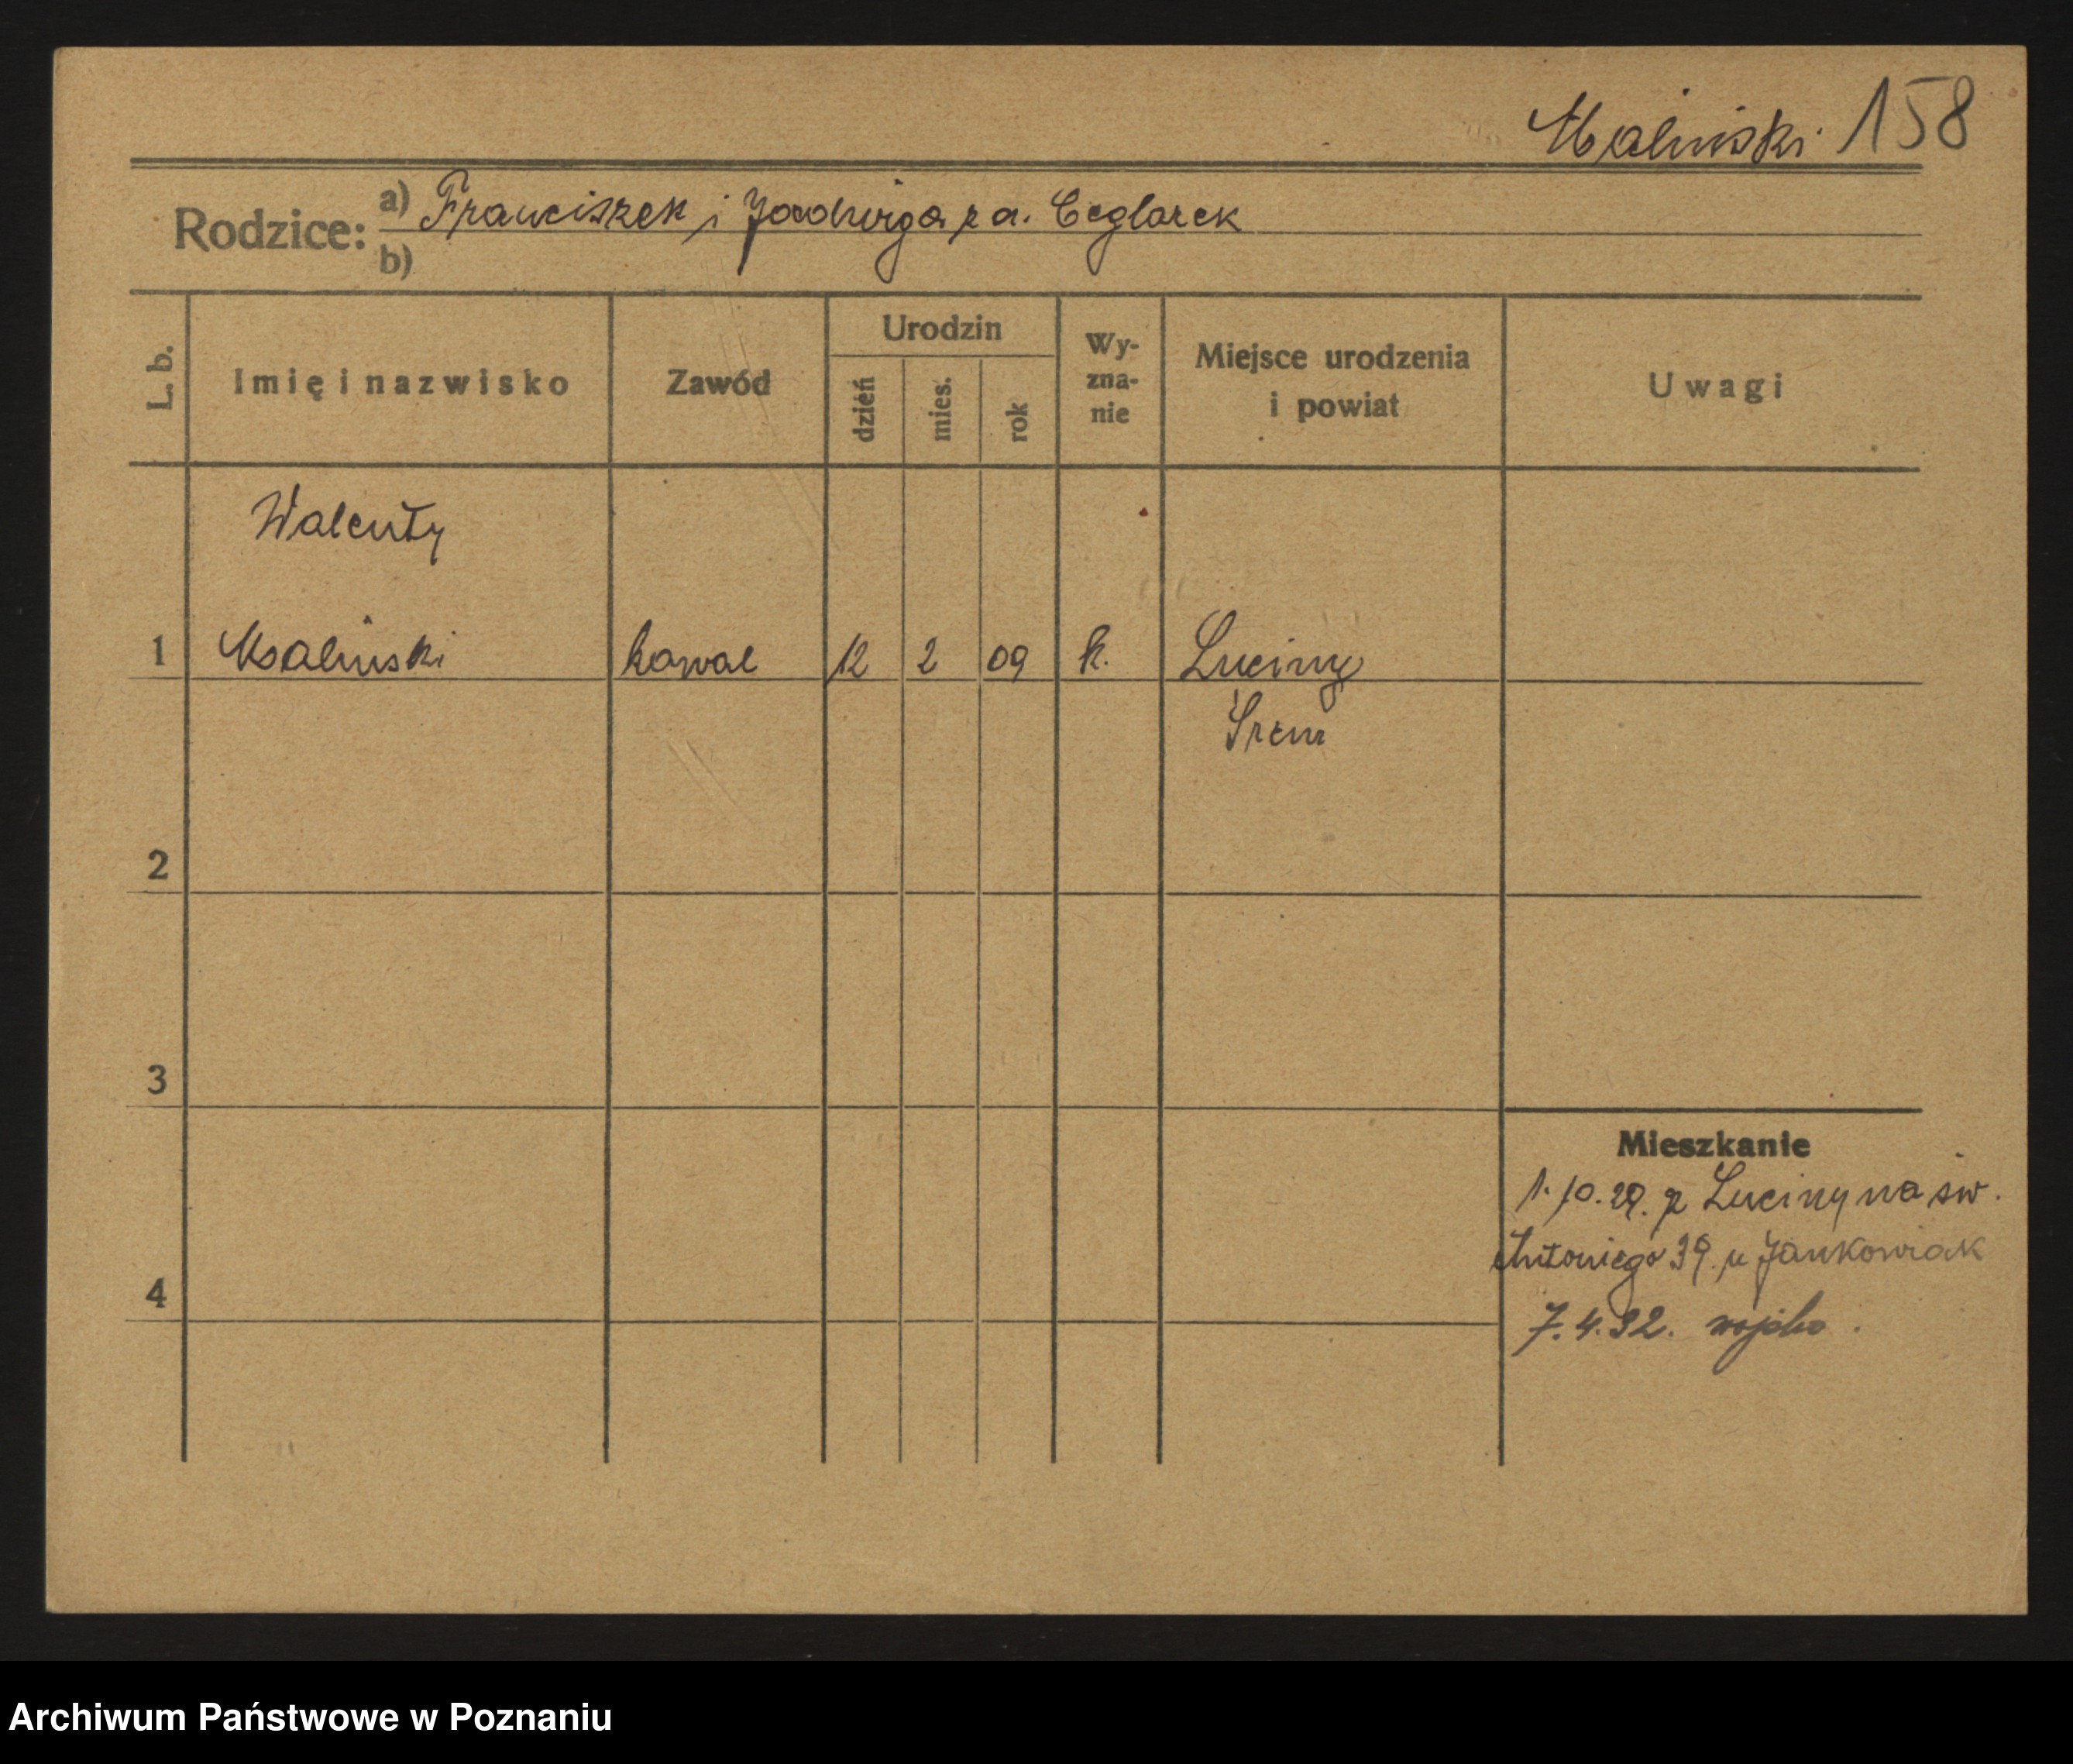 Maliński 158
Rodzice: a) Franciszek i Jadwiga z d. Ceglarek
b)
L. b. Imię i nazwisko Zawód Urodzin dzień mies. rok Wy-zna-nie Miejsce urodzenia i powiat Uwagi
Walenty
1 Maliński kowal 12 2 09 k. Luciny
Śrem
2
3
Mieszkanie
1.10.29. z Luciny na św.
Antoniego 39. u Jankowiak
4
7.4.32. wojsko.
Archiwum Państwowe w Poznaniu